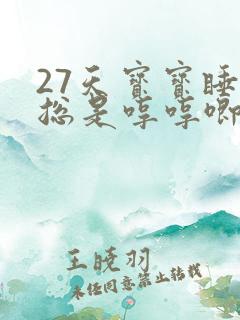 27天宝宝睡
总是哼哼唧
王晓羽
未经同意禁止转载